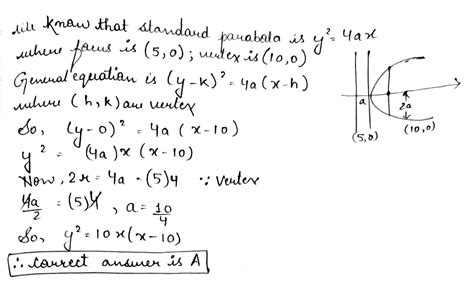 We know that standard parabola is y² = 4ax
where focus is (5,0); vertex is (10,0)
General equation is (y-k)² = 4a(x-h)
where (h,k) are vertex
So, (y-0)² = 4a (x-10)
y² = (4a)x (x-10)
Now, 2x = 4a = (5)4 ∵ Vertex
4a/2 = (5)4, a = 10/4
So, y² = 10x(x-10)
∴ correct answer is A
a
2a
(5,0)
(10,0)